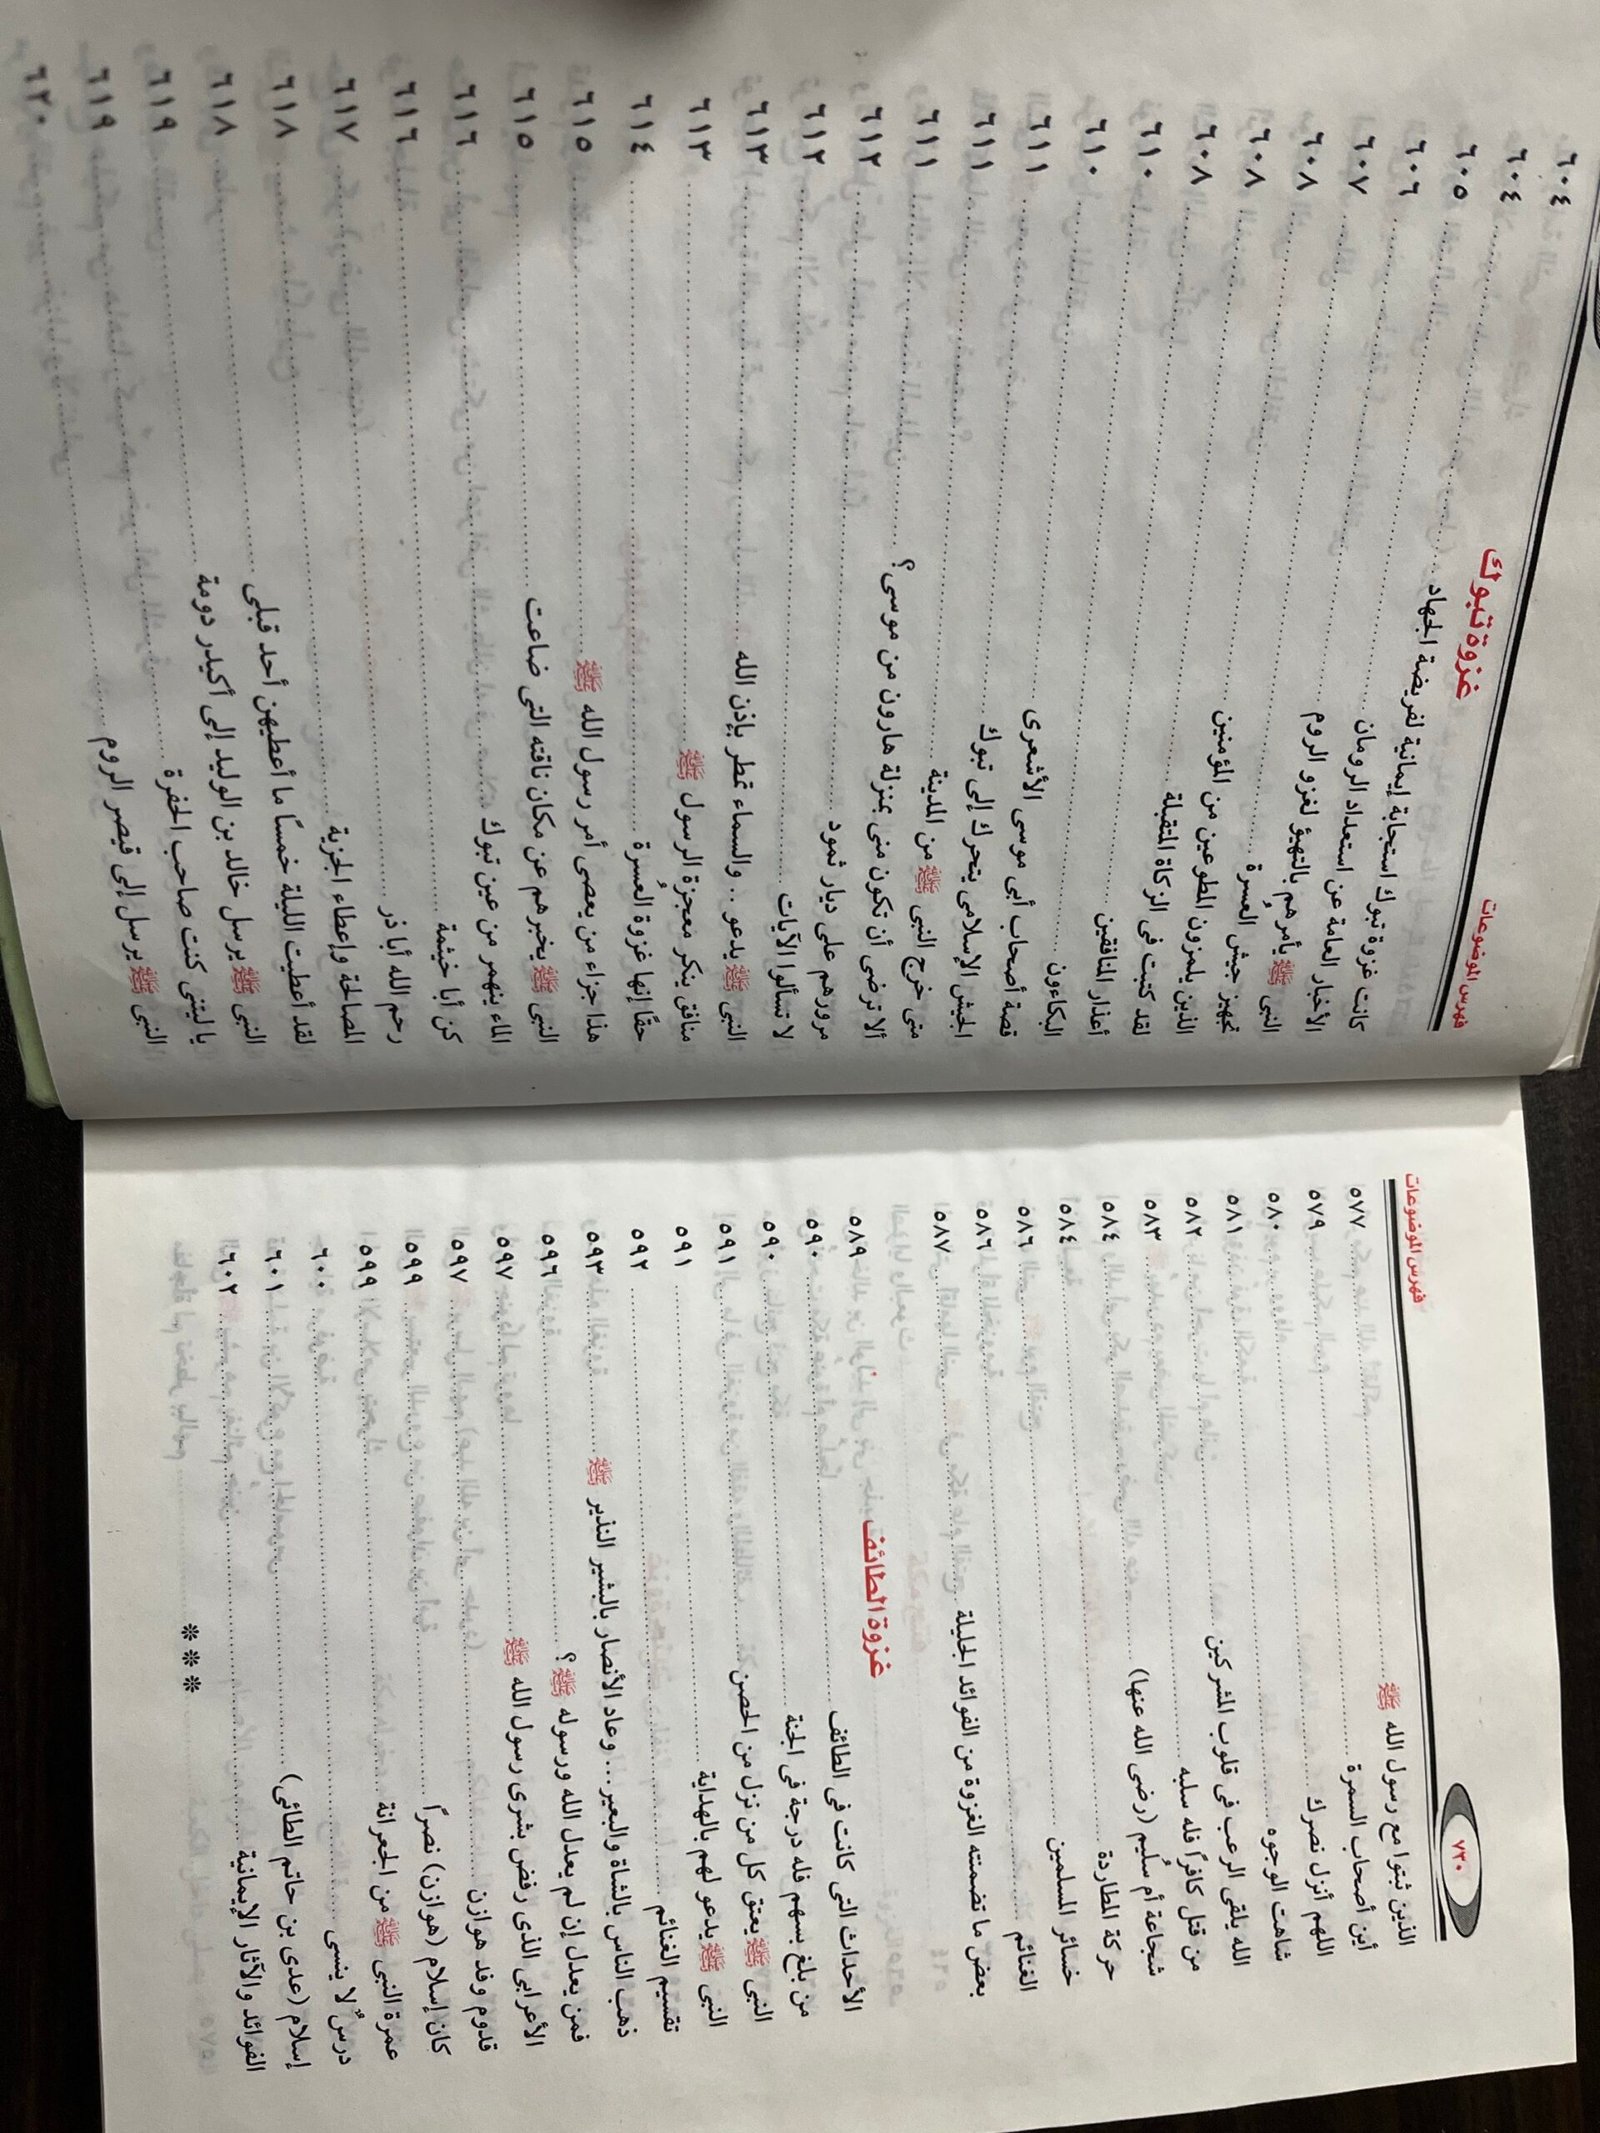 ٧٣٠
فهرس الموضوعات
الذين ثبتوا مع رسول الله ﷺ ........ ٥٧٧
أين أصحاب السمرة ........ ٥٧٩
اللهم أنزل نصرك ........ ٥٨٠
شاهت الوجوه ........ ٥٨١
الله يلقى الرعب فى قلوب المشركين ........ ٥٨٢
من قتل كافرًا فله سلبه ........ ٥٨٣
شجاعة أم سُليم (رضى الله عنها) ........ ٥٨٤
حركة المطاردة ........ ٥٨٤
خسائر المسلمين ........ ٥٨٦
الغنائم ........ ٥٨٦
بعض ما تضمنته الغزوة من الفوائد الجليلة ........ ٥٨٧
غزوة الطائف ٥٨٩
الأحداث التى كانت فى الطائف ........ ٥٩٠
من بلغ بسهم فله درجة فى الجنة ........ ٥٩٠
النبى ﷺ يعتق كل من نزل من الحصن ........ ٥٩١
النبى ﷺ يدعو لهم بالهداية ........ ٥٩١
تقسيم الغنائم ........ ٥٩٢
ذهب الناس بالشاة والبعير... وعاد الأنصار بالبشير النذير ﷺ ........ ٥٩٣
فمن يعدل إن لم يعدل الله ورسوله ﷺ؟ ........ ٥٩٦
الأعرابى الذى رفض بشرى رسول الله ﷺ ........ ٥٩٧
قدوم وفد هوازن ........ ٥٩٧
كان إسلام (هوازن) نصرًا ........ ٥٩٩
عمرة النبى ﷺ من الجعرانة ........ ٥٩٩
درسٌ لا ينسى ........ ٦٠٠
إسلام (عدى بن حاتم الطائى) ........ ٦٠١
الفوائد والآثار الإيمانية ........ ٦٠٢
***
فهرس الموضوعات
غزوة تبوك ٦٠٤
كانت غزوة تبوك استجابة إيمانية لفريضة الجهاد ........ ٦٠٤
الأخبار العامة عن استعداد الرومان ........ ٦٠٥
النبى ﷺ يأمرهم بالتهيؤ لغزو الروم ........ ٦٠٦
تجهيز جيش العسرة ........ ٦٠٧
الذين يلمزون المطوعين من المؤمنين ........ ٦٠٨
لقد كتبت فى الزكاة المتقبلة ........ ٦٠٨
أعذار المنافقين ........ ٦٠٨
البكاءون ........ ٦١٠
قصة أصحاب أبى موسى الأشعرى ........ ٦١٠
الجيش الإسلامى يتحرك إلى تبوك ........ ٦١١
متى خرج النبى ﷺ من المدينة ........ ٦١١
ألا ترضى أن تكون منى بمنزلة هارون من موسى؟ ........ ٦١١
مرورهم على ديار ثمود ........ ٦١٢
لا تسألوا الآيات ........ ٦١٢
النبى ﷺ يدعو.. والسماء تمطر بإذن الله ........ ٦١٣
منافق ينكر معجزة الرسول ﷺ ........ ٦١٣
حقًا إنها غزوة العُسرة ........ ٦١٤
هذا جزاء من يعصى أمر رسول الله ﷺ ........ ٦١٥
النبى ﷺ يخبرهم عن مكان ناقته التى ضاعت ........ ٦١٥
الماء ينهمر من عين تبوك ........ ٦١٦
كن أبا خيثمة ........ ٦١٦
رحم الله أبا ذر ........ ٦١٧
المصالحة وإعطاء الجزية ........ ٦١٨
لقد أعطيت الليلة خمسًا ما أعطيهن أحد قبلى ........ ٦١٨
النبى ﷺ يرسل خالد بن الوليد إلى أكيدر دومة ........ ٦١٩
يا ليتنى كنت صاحب الحفرة ........ ٦١٩
النبى ﷺ يرسل إلى قيصر الروم ........ ٦٢٠